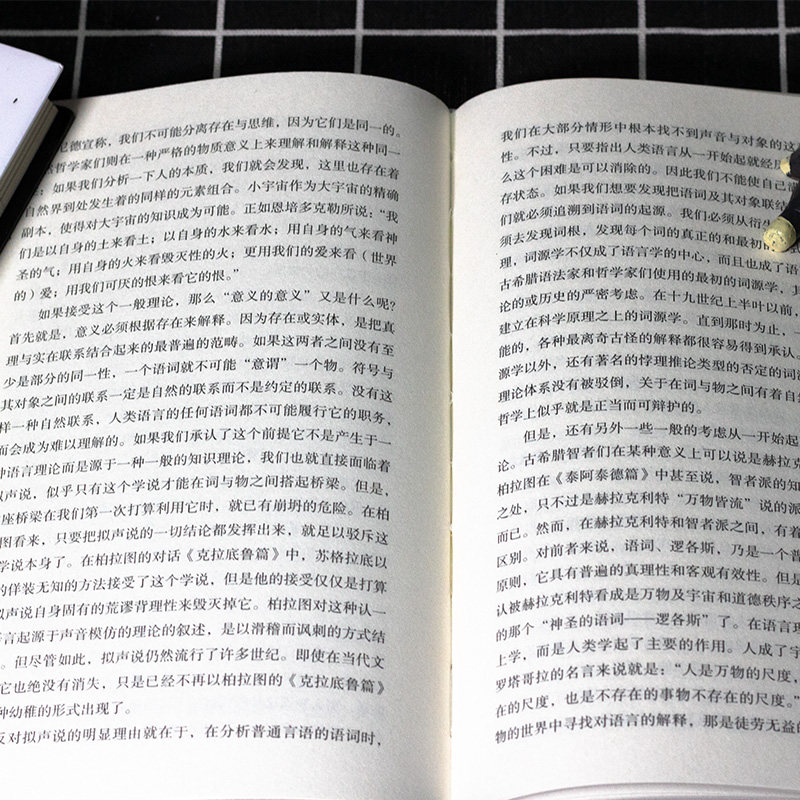 尼德宣称，我们不可能分离存在与思维，因为它们是同一的。
哲学家们则在一种严格的物质意义上来理解和解释这种同一
：如果我们分析一下人的本质，我们就会发现，这里也存在着
自然界到处发生着的同样的元素组合。小宇宙作为大宇宙的精确
副本，使得对大宇宙的知识成为可能。正如恩培多克勒所说：“我
们是以自身的土来看土；以自身的水来看水；用自身的气来看神
圣的气；用自身的火来看毁灭性的火；更用我们的爱来看（世界
的）爱；用我们可厌的恨来看它的恨。”
如果接受这个一般理论，那么“意义的意义”又是什么呢？
首先就是，意义必须根据存在来解释。因为存在或实体，是把真
理与实在联系结合起来的最普遍的范畴。如果这两者之间没有至
少是部分的同一性，一个语词就不可能“意谓”一个物。符号与
其对象之间的联系一定是自然的联系而不是约定的联系。没有这
样一种自然联系，人类语言的任何语词都不可能履行它的职务，
而会成为难以理解的。如果我们承认了这个前提它不是产生于一
种语言理论而是源于一种一般的知识理论，我们也就直接面临着
拟声说，似乎只有这个学说才能在词与物之间搭起桥梁。但是，
座桥梁在我们第一次打算利用它时，就已有崩坍的危险。在柏
图看来，只要把拟声说的一切结论都发挥出来，就足以驳斥这
学说本身了。在柏拉图的对话《克拉底鲁篇》中，苏格拉底以
的佯装无知的方法接受了这个学说，但是他的接受仅仅是打算
拟声说自身固有的荒谬背理性来毁灭掉它。柏拉图对这种认一
言起源于声音模仿的理论的叙述，是以滑稽而讽刺的方式结
。但尽管如此，拟声说仍然流行了许多世纪。即使在当代文
它也绝没有消失，只是已经不再以柏拉图的《克拉底鲁篇》
种幼稚的形式出现了。
反对拟声说的明显理由就在于，在分析普通言语的语词时，
我们在大部分情形中根本找不到声音与对象的这
性。不过，只要指出人类语言从一开始起就经
么这个困难是可以消除的。因此我们不能使自己
存状态。如果我们想要发现把语词及其对象联结
们就必须追溯到语词的起源。我们必须从衍生
须去发现词根，发现每个词的真正的和最初的
理，词源学不仅成了语言学的中心，而且也成了语
古希腊语法家和哲学家们使用的最初的词源学，其
论的或历史的严密考虑。在十九世纪上半叶以前，
建立在科学原理之上的词源学。直到那时为止，
能的，各种最离奇古怪的解释都很容易得到承认。
源学以外，还有著名的悖理推论类型的否定的词
理论体系没有被驳倒，关于在词与物之间有着自
哲学上似乎就是正当而可辩护的。
但是，还有另外一些一般的考虑从一开始起
论。古希腊智者们在某种意义上可以说是赫拉克
柏拉图在《泰阿泰德篇》中甚至说，智者派的知
之处，只不过是赫拉克利特“万物皆流”说的派
而已。然而，在赫拉克利特和智者派之间，有着
区别。对前者来说，语词、逻各斯，乃是一个普
原则，它具有普遍的真理性和客观有效性。但是
认被赫拉克利特看成是万物及宇宙和道德秩序之
的那个“神圣的语词——逻各斯”了。在语言理
上学，而是人类学起了主要的作用。人成了宇
罗塔哥拉的名言来说就是：“人是万物的尺度，
在的尺度，也是不存在的事物不存在的尺度。”
物的世界中寻找对语言的解释，那是徒劳无益的